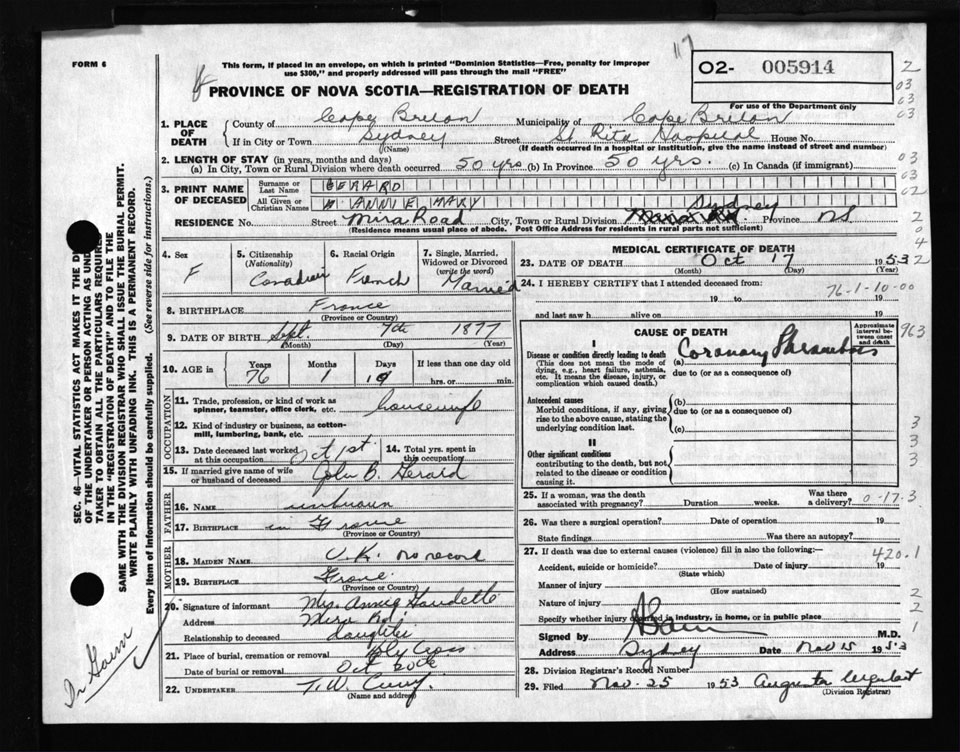 117
FORM 6
This form, if placed in an envelope, on which is printed "Dominion Statistics—Free, penalty for improper
use $300," and properly addressed will pass through the mail "FREE"
O2- 005914
For use of the Department only
PROVINCE OF NOVA SCOTIA—REGISTRATION OF DEATH
1. PLACE OF DEATH { County of Cape Breton Municipality of Cape Breton
If in City or Town Sydney (Name) Street St Rita Hospital House No.
(If death occurred in a hospital or institution, give the name instead of street and number)
2. LENGTH OF STAY (in years, months and days)
(a) In City, Town or Rural Division where death occurred 50 yrs (b) In Province 50 yrs. (c) In Canada (if immigrant)
3. PRINT NAME OF DECEASED { Surname or Last Name GERARD
All Given or Christian Names ANNIE MARY
RESIDENCE No. Street Mira Road City, Town or Rural Division Sydney Province NS
(Residence means usual place of abode. Post Office Address for residents in rural parts not sufficient)
4. Sex F
5. Citizenship (Nationality) Canadian
6. Racial Origin French
7. Single, Married, Widowed or Divorced (write the word) Married
8. BIRTHPLACE France
(Province or Country)
9. DATE OF BIRTH Sept. 7th 1877
(Month) (Day) (Year)
10. AGE in Years 76 Months 1 Days 10 If less than one day old hrs. or min.
OCCUPATION
11. Trade, profession, or kind of work as spinner, teamster, office clerk, etc. housewife
12. Kind of industry or business, as cotton-mill, lumbering, bank, etc.
13. Date deceased last worked at this occupation Oct 1st
14. Total yrs. spent in this occupation
15. If married give name of wife or husband of deceased John B. Gerard
FATHER
16. NAME unknown
17. BIRTHPLACE in France
(Province or Country)
MOTHER
18. MAIDEN NAME U.K. no record
19. BIRTHPLACE France
(Province or Country)
20. Signature of informant Mrs. Annie Gaudette
Address Mira Rd.
Relationship to deceased daughter
21. Place of burial, cremation or removal Holy Cross
Date of burial or removal Oct 20th
22. UNDERTAKER T.W. Curry.
(Name and address)
MEDICAL CERTIFICATE OF DEATH
23. DATE OF DEATH Oct 17 1953
(Month) (Day) (Year)
24. I HEREBY CERTIFY that I attended deceased from:
76-1-10-00
19 to 19
and last saw h alive on 19
CAUSE OF DEATH
Approximate interval between onset and death
I
Disease or condition directly leading to death
(This does not mean the mode of dying, e.g., heart failure, asthenia, etc. It means the disease, injury, or complication which caused death.)
(a) Coronary Thrombosis
due to (or as a consequence of)
Antecedent causes
Morbid conditions, if any, giving rise to the above cause, stating the underlying condition last.
(b)
due to (or as a consequence of)
(c)
II
Other significant conditions
contributing to the death, but not related to the disease or condition causing it.
25. If a woman, was the death associated with pregnancy? Duration weeks. Was there a delivery?
0-17.3
26. Was there a surgical operation? Date of operation 19
State findings Was there an autopsy?
27. If death was due to external causes (violence) fill in also the following:—
420.1
Accident, suicide or homicide? Date of injury 19
(State which)
Manner of injury
(How sustained)
Nature of injury
Specify whether injury occurred in industry, in home, or in public place
Signed by M.D.
Address Sydney Date Nov 15 1953
28. Division Registrar's Record Number
29. Filed Nov. 25 1953 Augusta
(Division Registrar)
SEC. 46—VITAL STATISTICS ACT MAKES IT THE
OF THE UNDERTAKER OR PERSON ACTING AS
TAKER TO OBTAIN ALL THE PARTICULARS
IN THE "REGISTRATION OF DEATH" AND TO FILE THE
SAME WITH THE DIVISION REGISTRAR WHO SHALL ISSUE THE BURIAL PERMIT.
WRITE PLAINLY WITH UNFADING INK. THIS IS A PERMANENT RECORD.
Every item of information should be carefully supplied. (See reverse side for instructions.)
2
03
63
03
03
03
02
2
0
4
2
963
3
3
3
2
2
1